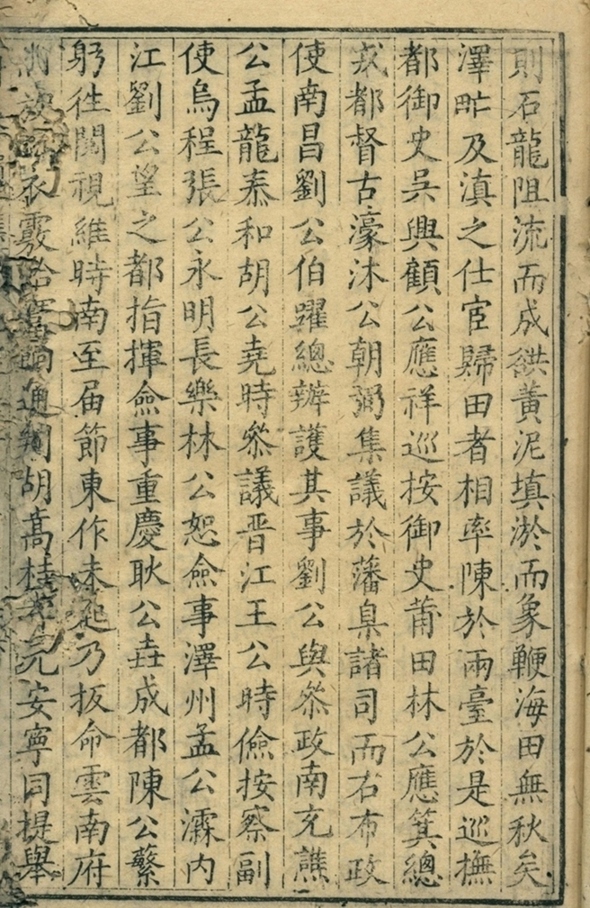 則石龍阻流而成谼黃泥填淤而象鞭海田無秋矣
澤甿及滇之仕宦歸田者相率陳於兩臺於是巡撫
都御史吳興顧公應祥巡按御史莆田林公應箕總
戎都督古濠沐公朝弼集議於藩臬諸司而右布政
使南昌劉公伯躍總辦護其事劉公與叅政南充譙
公孟龍泰和胡公堯時叅議晋江王公時儉按察副
使烏程張公永明長樂林公恕僉事澤州孟公霦內
江劉公望之都指揮僉事重慶耿公垚成都陳公蘩
躬徃閱視維時南至届節東作未起乃扳命雲南府
通判胡高桂元安寧同提舉